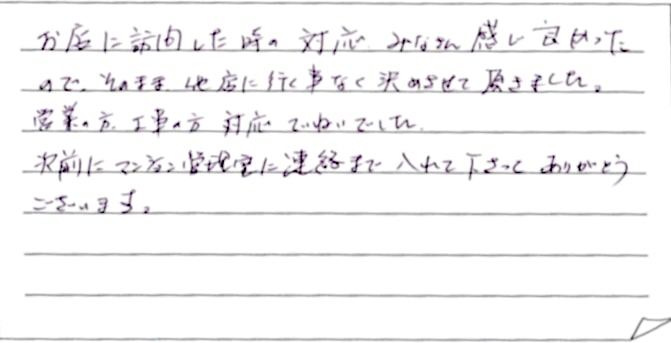 お店に訪問した時の対応、みなさん感じ良かった
ので、そのまま他店に行く事なく決めさせて頂きました。
営業の方、工事の方 対応ていねいでした。
事前にマンション管理室に連絡まで入れて下さって ありがとう
ございます。